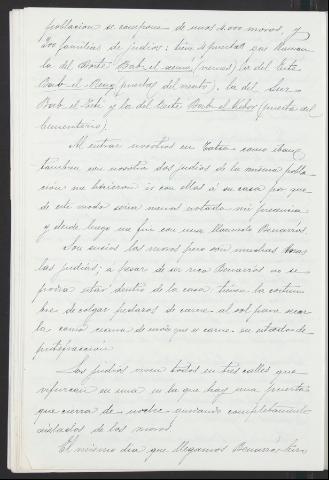 poblacion se compone de unos 4.000 moros, y
200 familias de judios: tiene 4 puertas una llama-
da del Norte Bab-el- (viernes) la del Este
Bab-el- (puertas del viento), la del Sur
Bab-el- y la del Oeste Bab-el- (puerta del
Cementerio).
Al entrar nosotros en como iban
tambien con nosotros dos judios de la misma pobla-
cion me hicieron ir con ellos á su casa por que
de este modo seria menos notada mi presencia
y desde luego me fui con uno llamado Benarros.
Son sucios los moros pero son muchas mas
las judias; a pesar de ser rico Benarros no se
podia estar dentro de la casa: tienen la costum-
bre de colgar pedazos de carne al sol para secar
la como carne de y carne en estado de
putrefaccion
Los judios viven todos en tres calles que
en una en la que hay una puerta
que cierra de noche quedando completamente
aislados de los moros.
El mismo dia que llegamos Benarros hizo